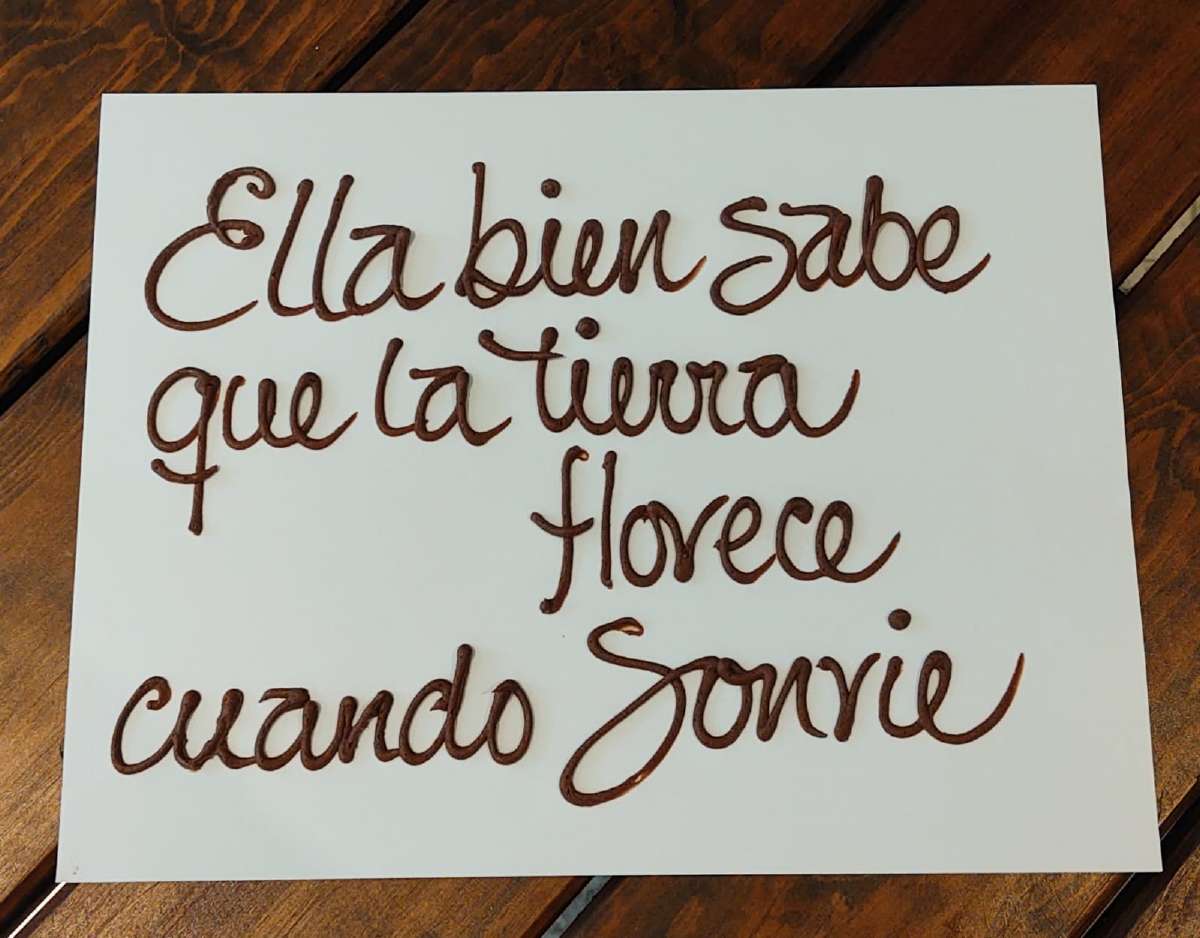 Ella bien sabe
que la tierra
florece
cuando Sonrie